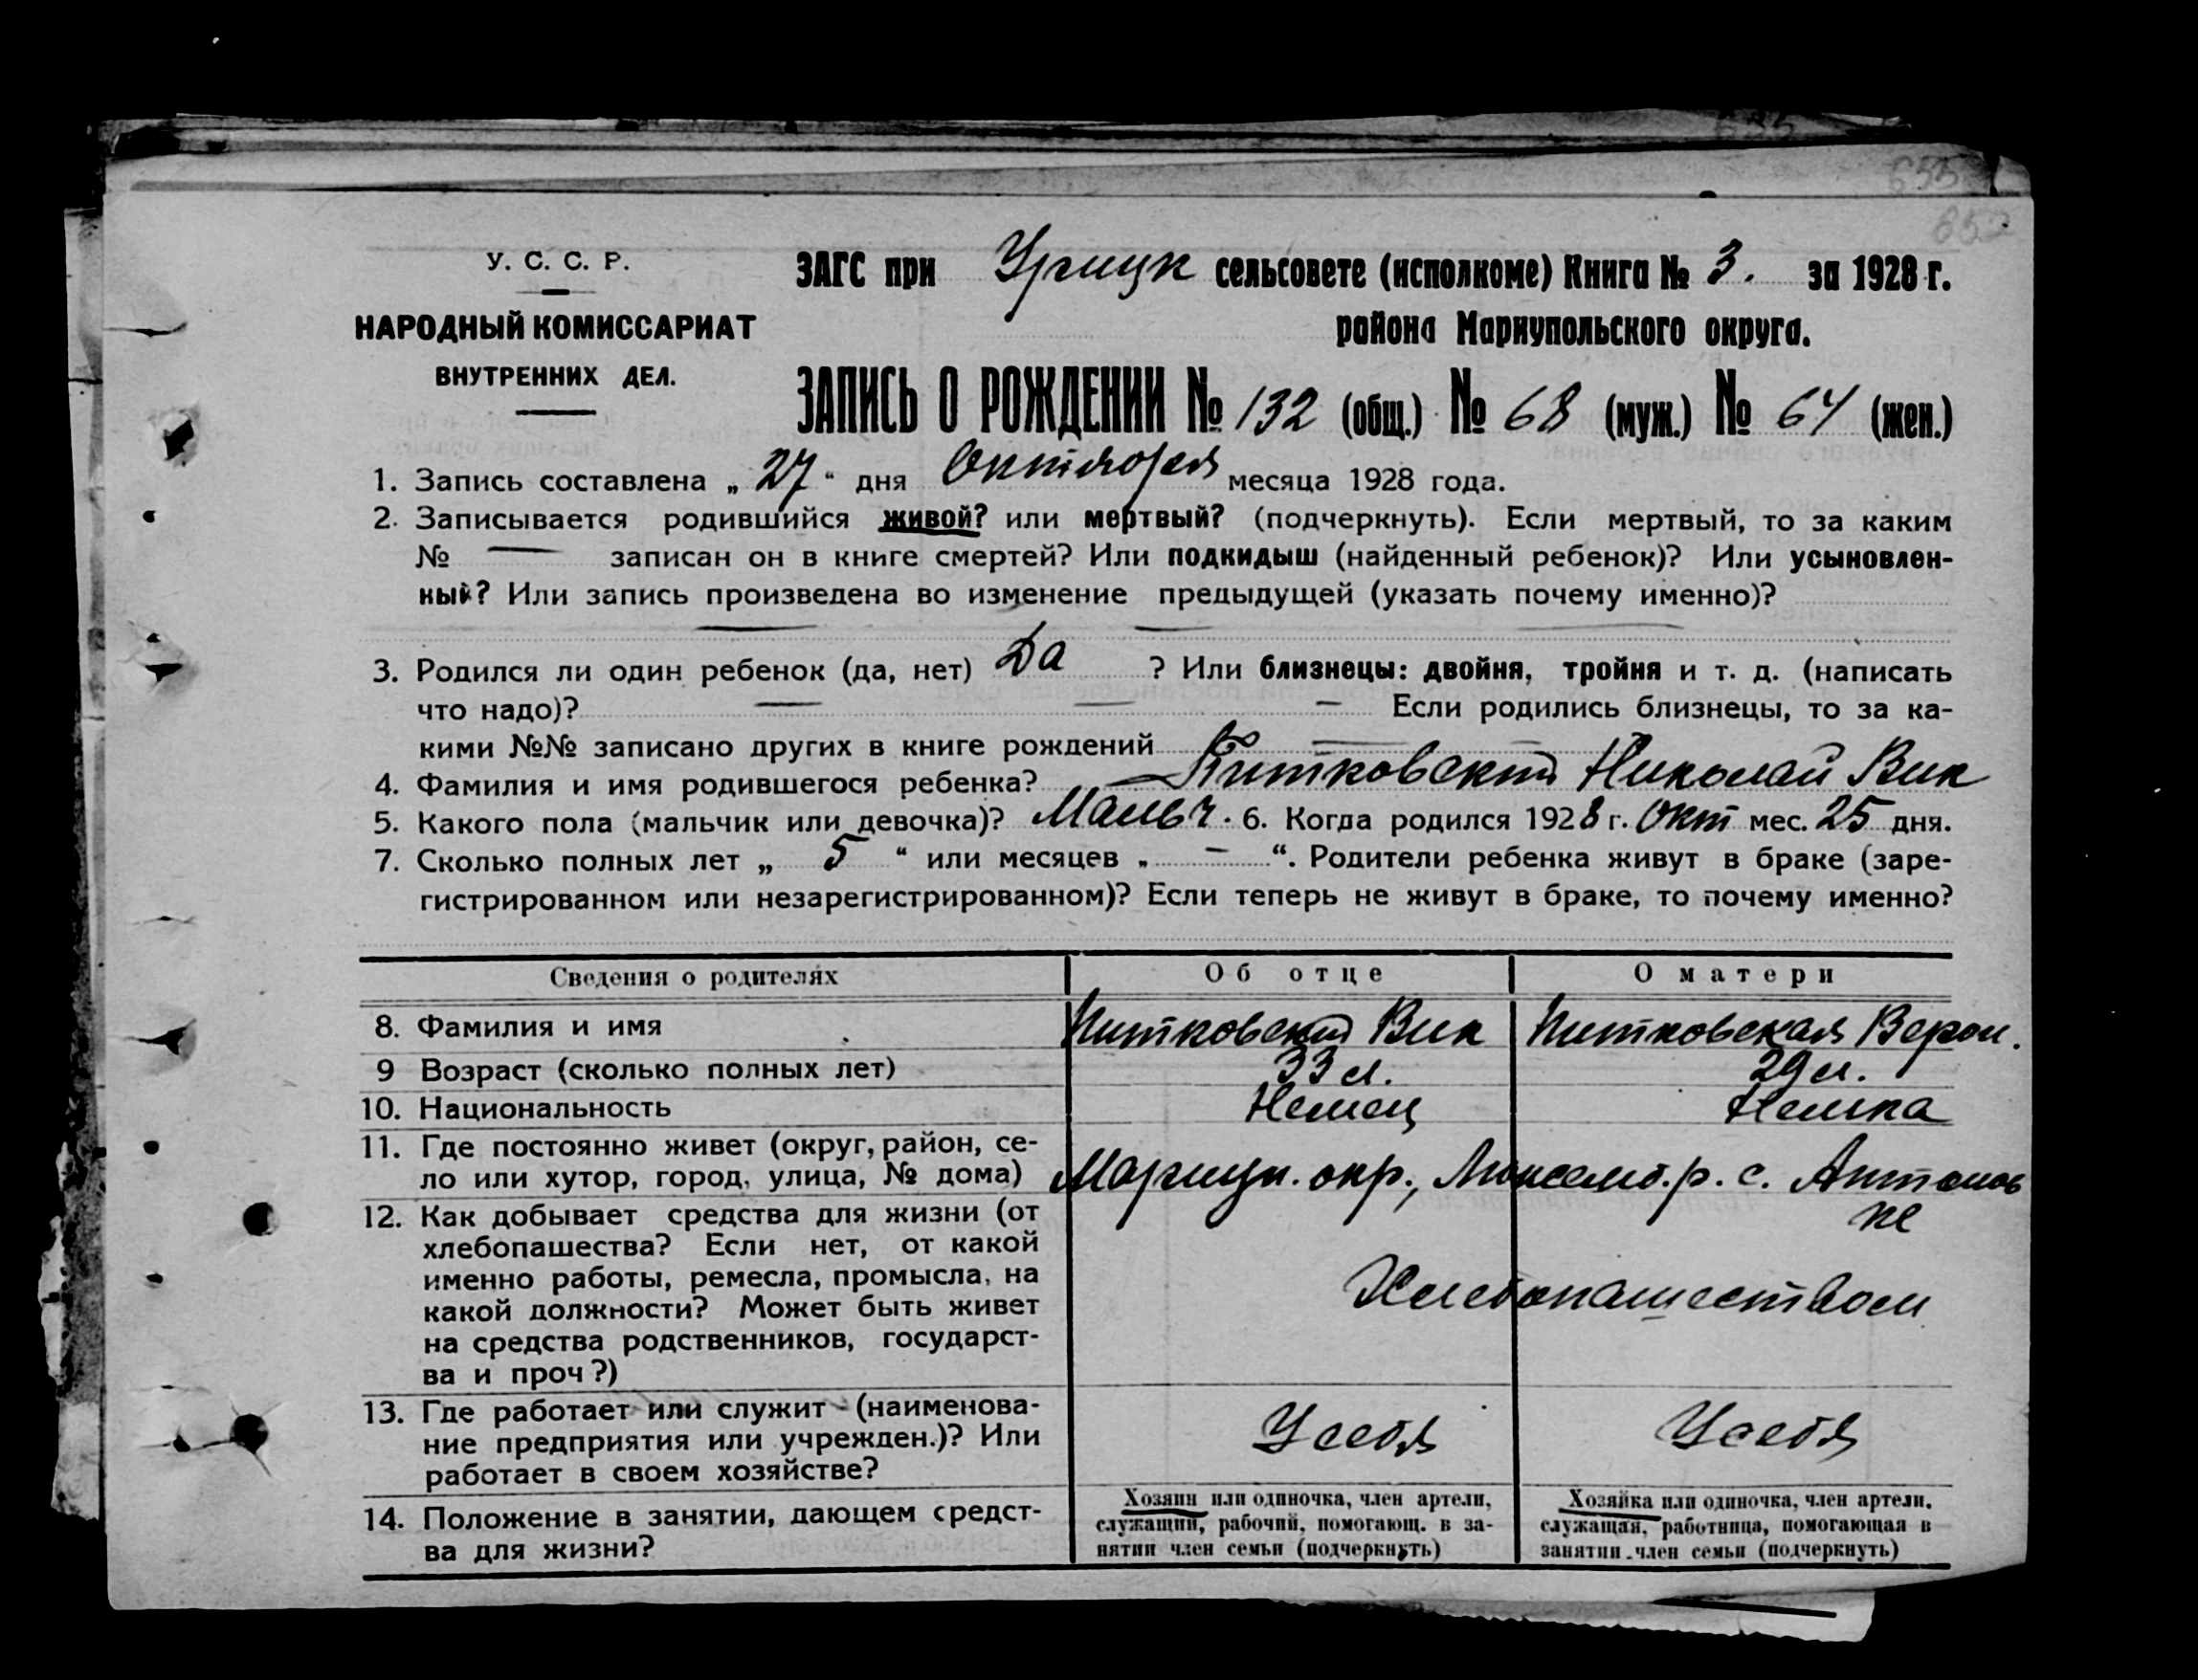 635
655
652
У. С. С. Р.
НАРОДНЫЙ КОМИССАРИАТ
ВНУТРЕННИХ ДЕЛ.
ЗАГС при Урицк сельсовете (исполкоме) Книга № 3. за 1928 г.
района Мариупольского округа.
ЗАПИСЬ О РОЖДЕНИИ № 132 (общ.) № 68 (муж.) № 64 (жен.)
1. Запись составлена „ 27 “ дня Октября месяца 1928 года.
2. Записывается родившийся живой? или мертвый? (подчеркнуть). Если мертвый, то за каким
№ — записан он в книге смертей? Или подкидыш (найденный ребенок)? Или усыновлен-
ный? Или запись произведена во изменение предыдущей (указать почему именно)?
3. Родился ли один ребенок (да, нет) Да ? Или близнецы: двойня, тройня и т. д. (написать
что надо)? — — — Если родились близнецы, то за ка-
кими №№ записано других в книге рождений
4. Фамилия и имя родившегося ребенка? Питковский Николай Вик
5. Какого пола (мальчик или девочка)? Мальч. 6. Когда родился 1928 г. Окт мес. 25 дня.
7. Сколько полных лет „ 5 “ или месяцев „ — “. Родители ребенка живут в браке (заре-
гистрированном или незарегистрированном)? Если теперь не живут в браке, то почему именно?
Сведения о родителях Об отце О матери
8. Фамилия и имя Питковский Вик Питковская Верон.
9 Возраст (сколько полных лет) 33 л. 29 л.
10. Национальность Немец Немка
11. Где постоянно живет (округ, район, се-
ло или хутор, город, улица, № дома) Мариуп. окр., Люксемб. р. с. Антонов
ке
12. Как добывает средства для жизни (от
хлебопашества? Если нет, от какой
именно работы, ремесла, промысла, на
какой должности? Может быть живет
на средства родственников, государст-
ва и проч?)
Хлебопашеством
13. Где работает или служит (наименова-
ние предприятия или учрежден.)? Или
работает в своем хозяйстве?
У себя У себя
14. Положение в занятии, дающем средст-
ва для жизни?
Хозяин или одиночка, член артели,
служащий, рабочий, помогающ. в за-
нятии член семьи (подчеркнуть)
Хозяйка или одиночка, член артели,
служащая, работница, помогающая в
занятии член семьи (подчеркнуть)